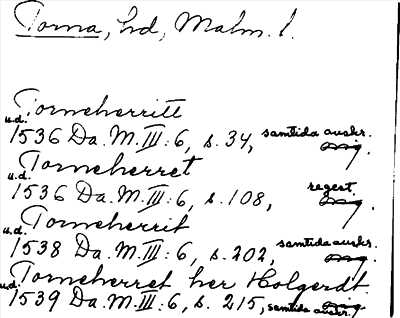 Torna, hd, Malm. l.
Torneherritt
u.d.
1536 Da. M. III: 6, s. 34, samtida avskr.
Torneherret
u.d.
1536 Da. M. III: 6, s. 108, regest.
Torneherrit
u.d.
1538 Da. M. III: 6, s. 202, samtida avskr.
Torneherret her Holgerdt.
u.d.
1539 Da. M. III: 6, s. 215, samtida avskr.